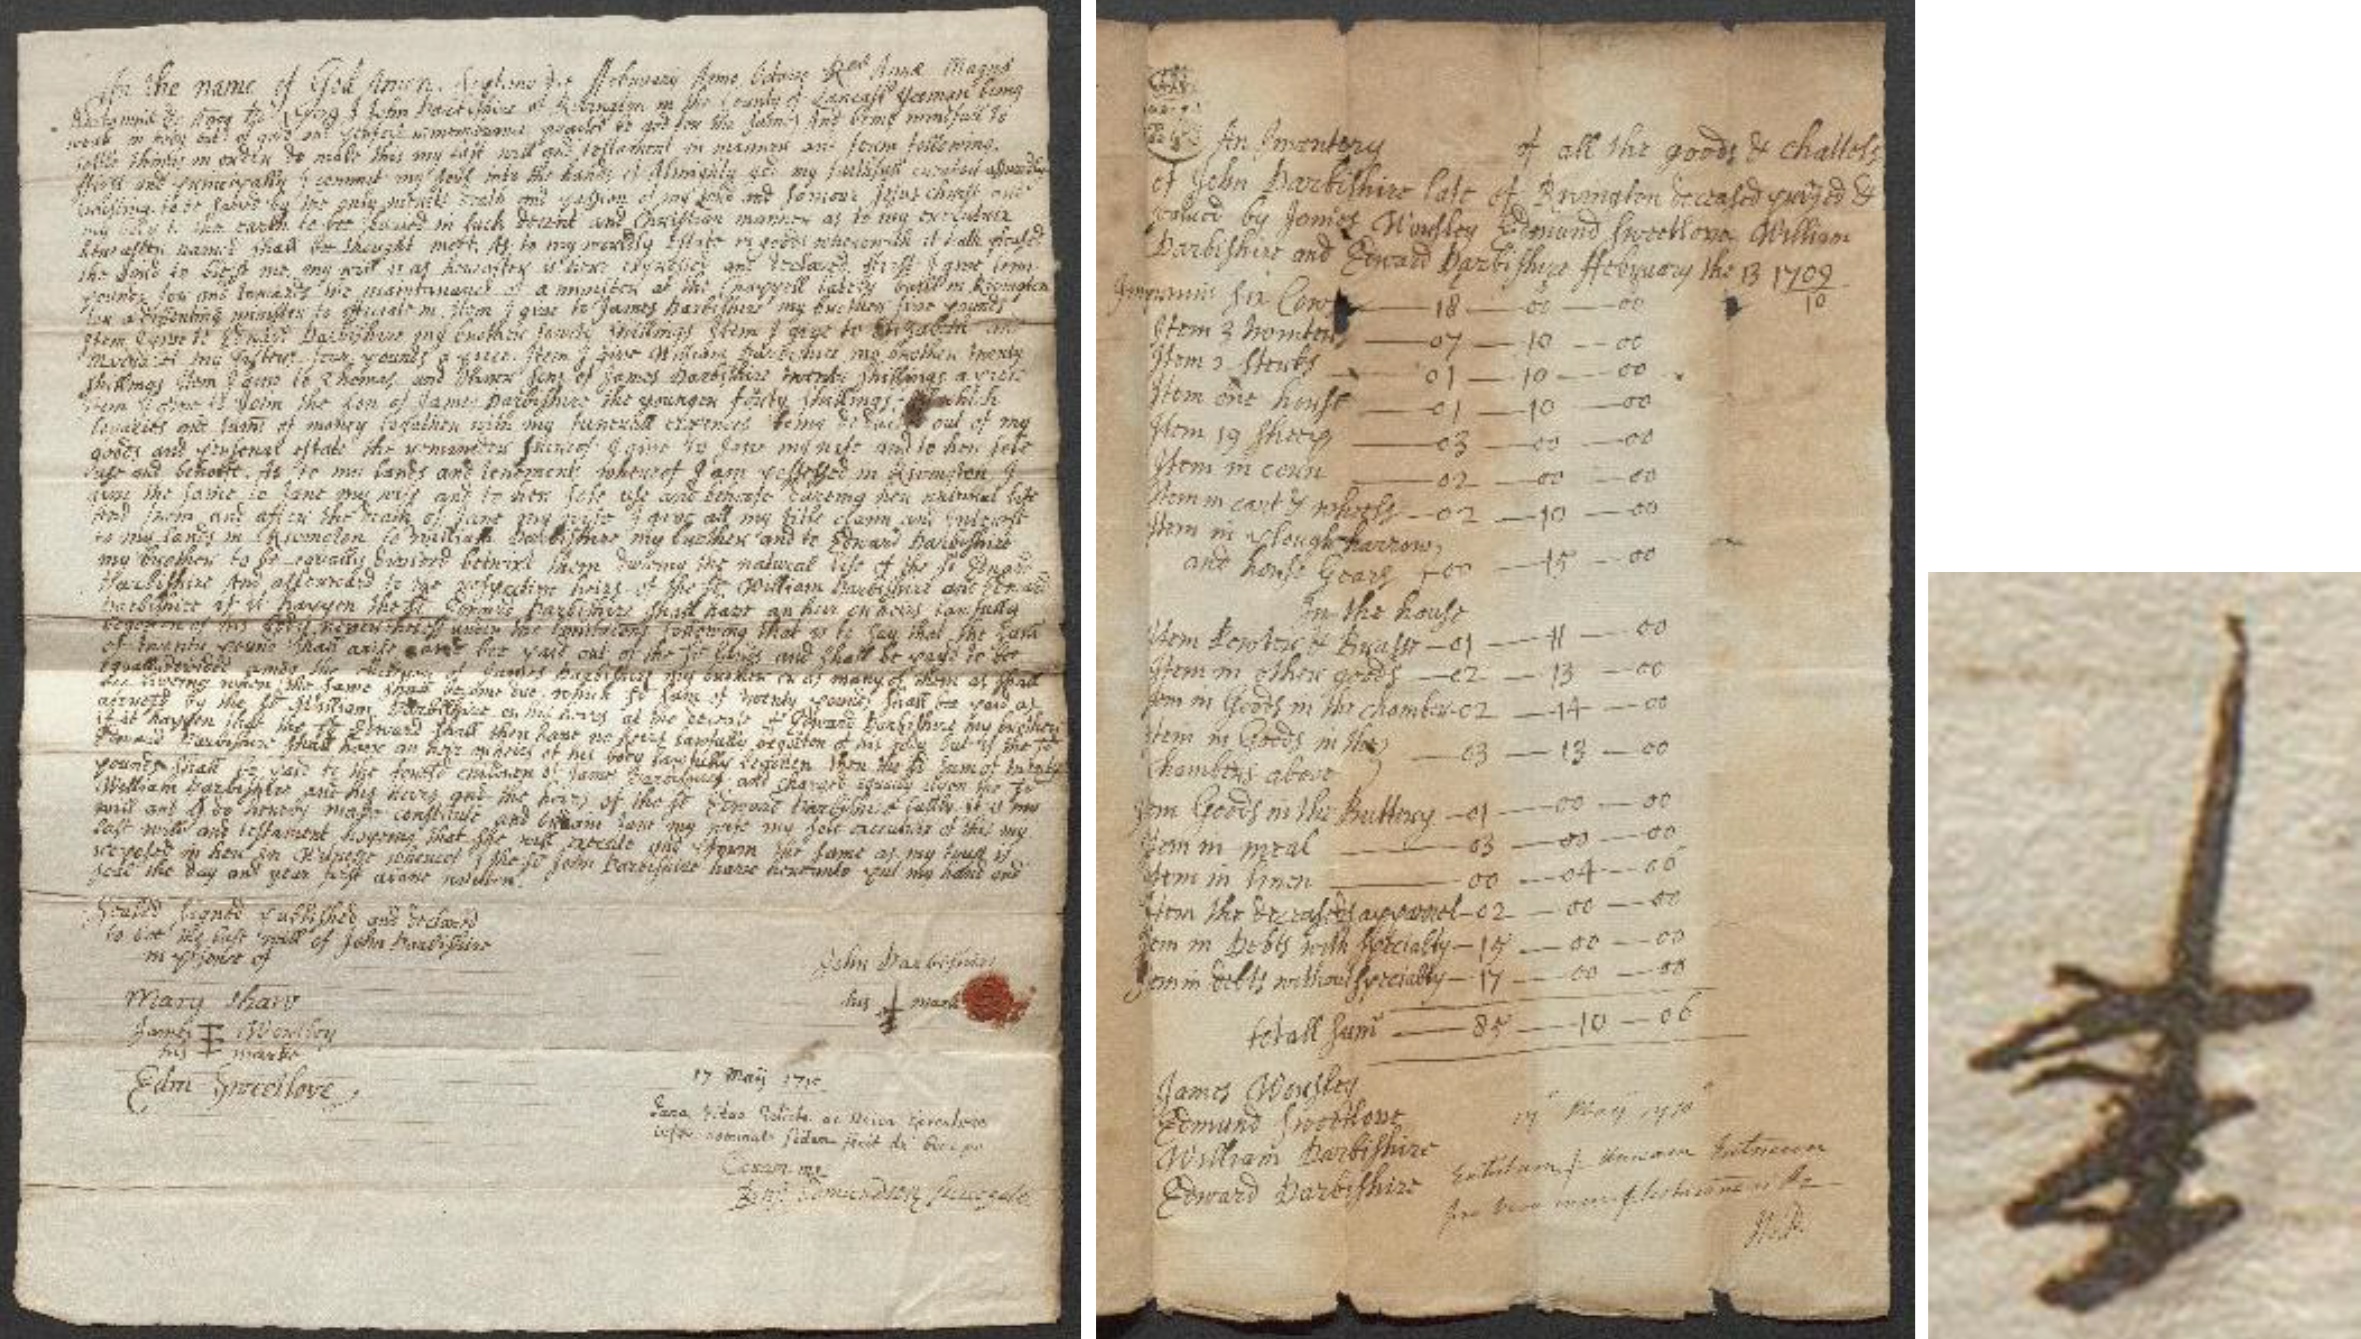 In the name of God Amen. Septimo die ffebruary Anno Octavo Rnæ Annæ Magnæ
1709 I John Darbishire of Rivington in the County of Lancastr Yeoman being
weak in body but of good and perfect remembrance praised be god for the same, And being mindfull to
settle things in order do make this my last will and testament in manner and form following.
ffirst and principally I commit my soul into the hands of Almighty god my faithfull creator assuredly
trusting to be saved by the only merits death and passion of my Lord and Saviour Jesus christ and
my body to the earth to bee buried in such decent and Christian manner as to my executrix
hereafter named shall be thought meet. As to my worldly Estate or goods wherewith it hath pleased
the Lord to bless me, my will is as hereafter is here expressed and declared. first I give
pounds for and towards the maintenance of a minister at the Chappell latly built in Rivington
for a dissenting minister to officiate in. Item I give to James Darbishire my brother five pounds
Item I give to Edward Darbishire my brother forty shillings Item I give to Elizabeth and
my sisters four pounds a piece. Item I give William Darbishire my brother twenty
shillings Item I give to Thomas and Oliver sons of James Darbishire twenty shillings a piece
Item I give to John the son of James Darbishire the younger forty shillings, which
legacies and sums of money together with my funerall expences being out of my
goods and personal estate the remainder thereof I give to Jane my wife and to her sole
use and behoofe. As to my lands and tenements whereof I am possessed in Rivington I
give the same to Jane my wife and to her sole use and behoofe dureing her natural life
And from and after the death of Jane my wife I give all my title claim and Interest
to my lands in Rivington to William Darbishire my brother and to Edward Darbishire
my brother to be equally divided betwixt them dureing the natural life of the sd Edward
Darbishire And afterward to the respective heirs of the sd William Darbishire and Edward
Darbishire if it happen the sd Edward Darbishire shall have an heir or heirs lawfully
begotten of his body, nevertheless under the limitations following that is to say that the sum
of twenty pound shall arise and bee paid out of the sd and shall be paid to be
equally devided amongs the children of James Darbishire my brother or as many of them as shall
bee liveing when the same shall become due. which sd sum of twenty pounds shall bee paid as
aforesd by the sd William Darbishire or his heirs at the decease of Edward Darbishire my brother
if it happen that the sd Edward shall then have no heirs lawfully begotten of his body but if the sd
Edward Darbishire shall have an heir or heirs of his body lawfully begotten then the sd sum of twenty
pounds shall be paid to the foresd children of James Darbishire and charged equally upon the sd
William Darbishire and his heirs and the heirs of the sd Edward Darbishire lastly it is my
will and I do hereby make constitute and ordain Jane my wife my sole executrix of this my
last will and testament hopeing that she will execute and perform the same as my trust is
reposed in her In Witness whereof I the sd John Darbishire have hereunto put my hand and
seal the day and year first above written.
Sealed signed published and declared
to bee the last will of John Darbishire
in presence of
John Darbishire
his mark
Mary Shaw
James Worsley
his marke
Edm Sweetlove
17 Maij 1710
Jana Vidua Relicta ac Unica Executrix
infra nominat fidem fecit
Coram me
Benj: Edmundson Surrogate
An Inventory of all the goods & chattels
of John Darbishire late of Rivington deceased prized &
valued by James Worsley Edmund Sweetlove William
Darbishire and Edward Darbishire ffebruary the 13 1709/10
Imprimis six Cows — 18 — 00 — 00
Item 3 — 07 — 10 — 00
Item 2 Sterks — 01 — 10 — 00
Item one horse — 01 — 10 — 00
Item 19 Sheep — 03 — 00 — 00
Item in corn — 02 — 00 — 00
Item in cart & wheels — 02 — 10 — 00
Item in plough harrow,
and horse Gears — 00 — 15 — 00
In the house
Item Pewter & Brasse — 01 — 11 — 00
Item in other goods — 02 — 13 — 00
Item in Goods in the chamber — 02 — 14 — 00
Item in Goods in the
Chambers above — 03 — 13 — 00
Item Goods in the Buttery — 01 — 00 — 00
Item in meal — 03 — 00 — 00
Item in linen — 00 — 04 — 06
Item the deceaseds apparel — 02 — 00 — 00
Item in Debts with specialty — 15 — 00 — 00
Item in debts without specialty — 17 — 00 — 00
totall sum — 85 — 10 — 06
James Worsley
Edmund Sweetlove
William Darbishire
Edward Darbishire
17° May 1710